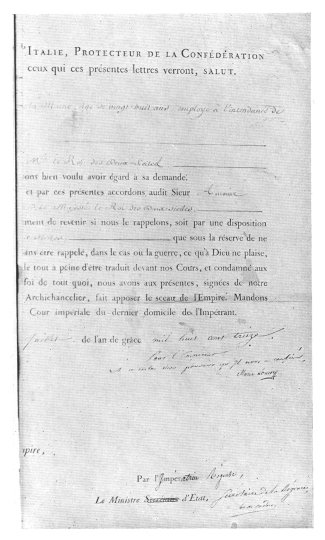 ITALIE, PROTECTEUR DE LA CONFÉDÉRATION
ceux qui ces présentes lettres verront, SALUT.
âgé de vingt huit ans employé à l'intendance de
le Roi des Deux Siciles
ons bien voulu avoir égard à sa demande
et par ces présentes accordons audit Sieur
Majesté le Roi des deux Siciles
ment de revenir si nous le rappelons, soit par une disposition
que sous la réserve de ne
ans être rappelé, dans le cas ou la guerre, ce qu'à Dieu ne plaise,
le tout à peine d'être traduit devant nos Cours, et condamné aux
foi de quoi, nous avons aux présentes, signées de notre
Archichancelier, fait apposer le sceau de l'Empire. Mandons
Cour impériale du dernier domicile de l'Impétrant.
juillet de l'an de grace mil huit cent treize
Pour l'Empereur
et en vertu des pouvoirs qu'il nous a confiés
mpire,
Par l'Impératrice Régente,
Le Ministre Secrétaire d'Etat, Secrétaire de la Régence